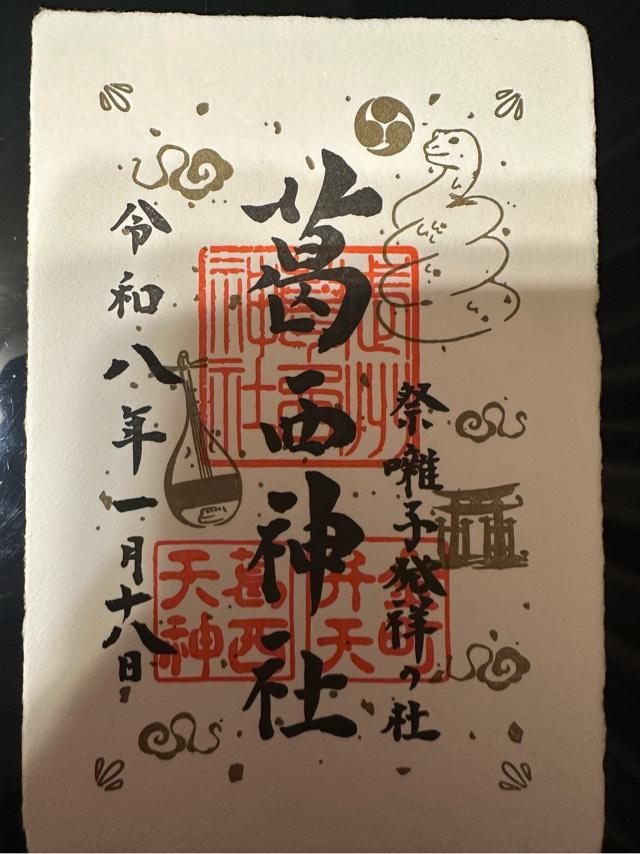 祭囃子発祥の社
葛西神社
令和八年一月十八日
武州
葛西
神社
弁天
葛西
天神